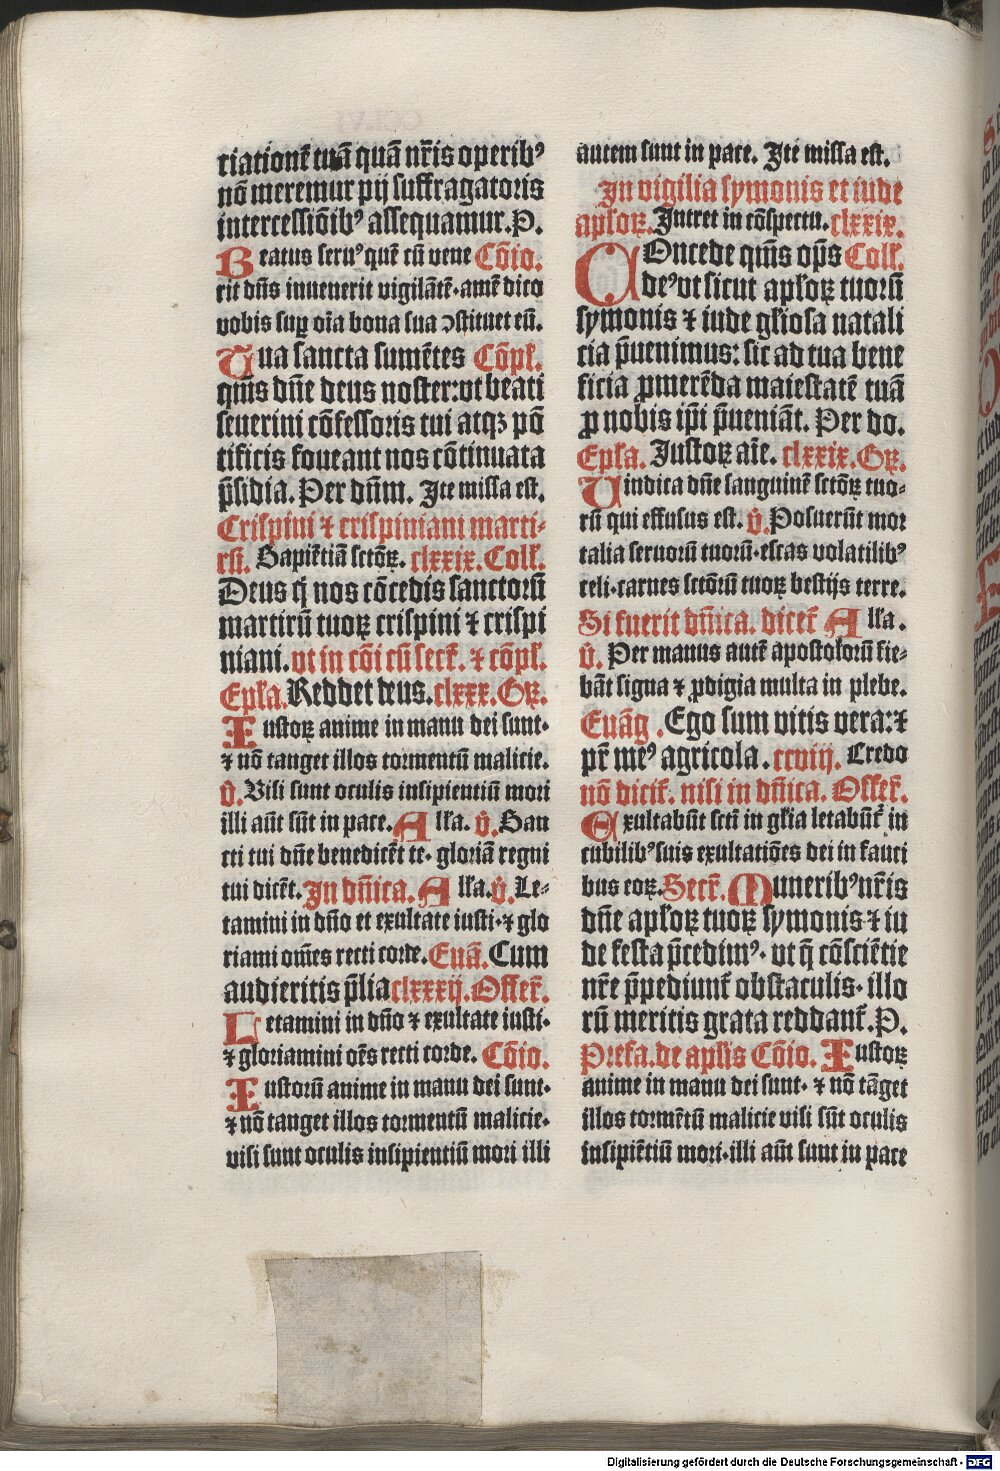 ciationē tuā quā nr̄is operibꝰ
nō meremur pij suffragatoris
intercessiōibꝰ assequamur. P.
Beatus seruꝰ quē cū vene Cōio.
rit dn̄s inuenerit vigilātē·amē dico
vobis suꝑ oīa bona sua ↄstituet eū.
Tua sancta sumētes Cōpl̄.
qm̄s dn̄e deus noster: vt beati
seuerini cōfessoris tui atqꝫ pō
tificis foueant nos cōtinuata
p̄sidia. Per dn̄m. Ite missa est.
Crispini ⁊ crispiniani marti-
rū. Sapiētiā sctōꝝ. clxxix. Coll̄.
Deus q̄ nos cōcedis sanctorū
martirū tuoꝝ crispini ⁊ crispi
niani. vt in cōi cū secr̄. ⁊ cōpl̄.
Epl̄a. Reddet deus. clxxx. Gꝝ.
Iustoꝝ anime in manu dei sunt·
⁊ nō tanget illos tormentū malicie.
v̄. Visi sunt oculis insipientiū mori
illi aūt sūt in pace. All̄a. v̄. San
cti tui dn̄e benedicēt te· gloriā regni
tui dicēt. In dn̄ica. All̄a. v̄. Le-
tamini in dn̄o et exultate iusti·⁊ glo
riami om̄es recti corde. Euā. Cum
audieritis p̄lia clxxxij. Offer̄.
Letamini in dn̄o ⁊ exultate iusti·
⁊ gloriamini oēs recti corde. Cōio.
Iustorū anime in manu dei sunt·
⁊ nō tanget illos tormentū malicie·
visi sunt oculis insipientiū mori illi
autem sunt in pace. Ite missa est.
In vigilia symonis et iude
apl̄oꝝ. Intret in cōspectu. clxxix.
COncede qm̄s op̄s Coll̄.
deꝰ vt sicut apl̄oꝝ tuorū
symonis ⁊ iude gl̄iosa natali
cia p̄uenimus: sic ad tua bene
ficia ꝓmerēda maiestatē tuā
ꝓ nobis ip̄i p̄ueniāt. Per do.
Epl̄a. Iustoꝝ aīe. clxxix. Gꝝ.
Vindica dn̄e sanguinē sctōꝝ tuo-
rū qui effusus est. v̄. Posuerūt mor
talia seruorū tuorū·escas volatilibꝰ
celi·carnes sctōrū tuoꝝ bestijs terre.
Si fuerit dn̄ica. dicet̄ All̄a.
v̄. Per manus autē apostolorū fie-
bāt signa ⁊ ꝓdigia multa in plebe.
Euāg. Ego sum vitis vera: ⁊
pr̄ meꝰ agricola. ccviij. Credo
nō dicit̄. nisi in dn̄ica. Offer̄.
Exultabūt scti in gl̄ia letabūt̄ in
cubilibꝰ suis exultatiōes dei in fauci
bus eoꝝ. Secr̄. Muneribꝰ nr̄is
dn̄e apl̄oꝝ tuoꝝ symonis ⁊ iu
de festa p̄cedimꝰ· vt q̄ cōsciētie
nr̄e p̄pediunt̄ obstaculis· illo
rū meritis grata reddant̄. P.
Prefa. de apl̄is Cōio. Iustoꝝ
anime in manu dei sunt· ⁊ nō tāget
illos tormētū malicie visi sūt oculis
insipiētiū mori·illi aūt sunt in pace
Digitalisierung gefördert durch die Deutsche Forschungsgemeinschaft - DFG